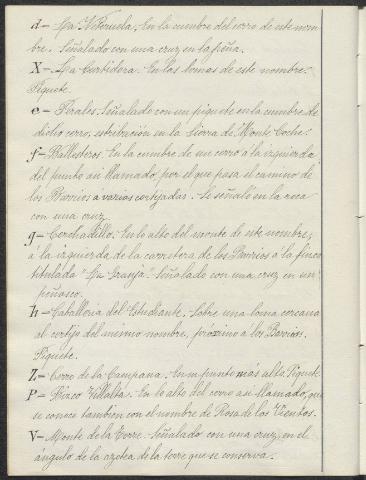 d- La Niñeruela. En la cumbre del cerro de este nom-
bre. Señalado con una cruz en la peña.
X- La Curtidora. En las lomas de este nombre.
Piquete.
e- Pirales. Señalado con un piquete en la cumbre de
dicho cerro, estribación en la Sierra de Monte Coche.
f- Ballesteros. En la cumbre de un cerro á la izquierda
del punto así llamado, por el que pasa el camino de
los Barrios á varios cortijadas. Se señaló en la roca
con una cruz.
g- Corchadillo. En lo alto del monte de este nombre,
á la izquierda de la carretera de los Barrios á la finca
titulada "La Granja". Señalado con una cruz en un
peñasco.
h- Caballería del Estudiante. Sobre una loma cercana
al cortijo del mismo nombre, próximo á los Barrios.
Piquete.
Z- Cerro de la Campana. En su punto más alto. Piquete
P- Risco Tillalta. En lo alto del cerro así llamado, que
se conoce tambien con el nombre de Rosa de los Vientos.
V- Monte de la Torre. Señalado con una cruz, en el
ángulo de la azotea de la torre que se conserva.